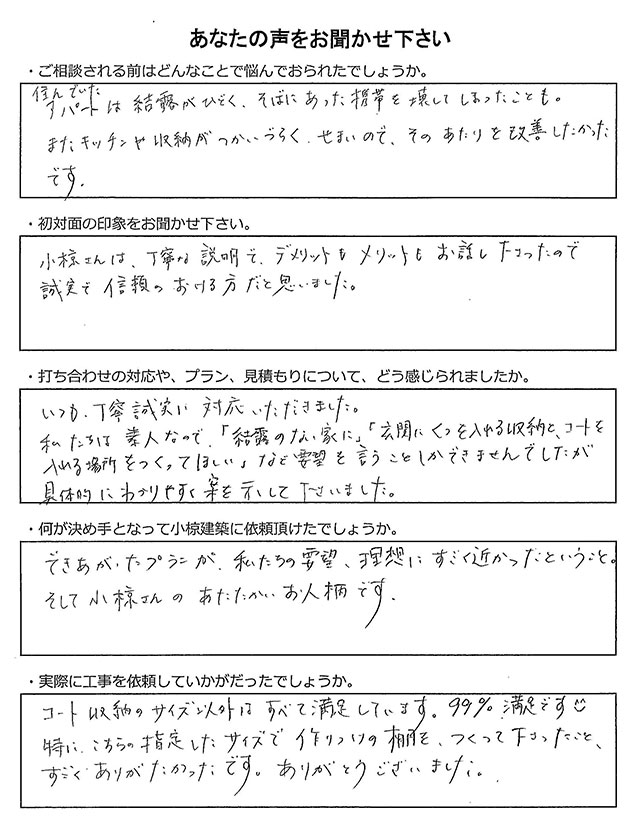 あなたの声をお聞かせ下さい
・ご相談される前はどんなことで悩んでおられたでしょうか。
住んでいた
アパートは結露がひどく、そばにあった携帯を壊してしまったことも。
またキッチンや収納がつかいづらく、せまいので、そのあたりを改善したかった
です。
・初対面の印象をお聞かせ下さい。
小椋さんは、丁寧な説明で、デメリットもメリットもお話し下さったので
誠実で信頼のおける方だと思いました。
・打ち合わせの対応や、プラン、見積もりについて、どう感じられましたか。
いつも、丁寧誠実に対応いただきました。
私たちは素人なので、「結露のない家に」「玄関にくつを入れる収納と、コートを
入れる場所をつくってほしい」など要望を言うことしかできませんでしたが
具体的にわかりやすく案を示して下さいました。
・何が決め手となって小椋建築に依頼頂けたでしょうか。
できあがったプランが、私たちの要望、理想にすごく近かったということ。
そして小椋さんのあたたかいお人柄です。
・実際に工事を依頼していかがだったでしょうか。
コート収納のサイズ以外はすべて満足しています。99%満足です
特に、こちらの指定したサイズで作りつけの棚を、つくって下さったこと、
すごくありがたかったです。ありがとうございました。